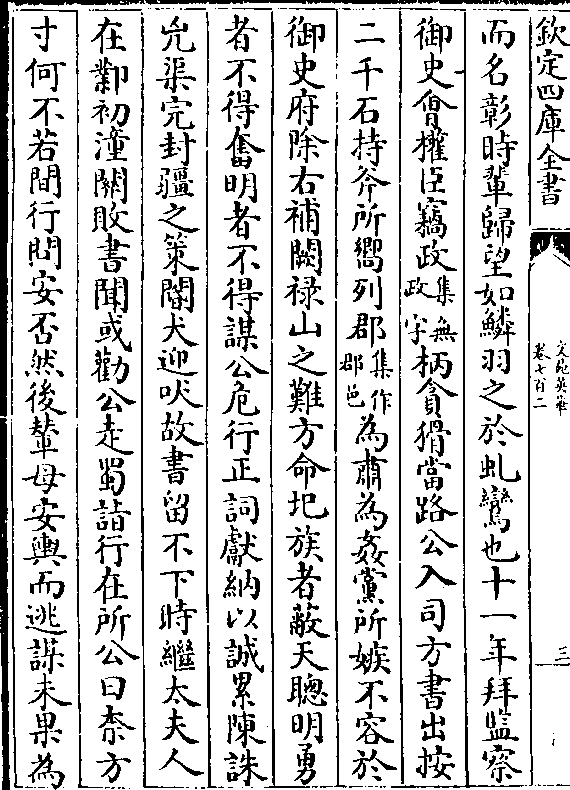 欽定四庫全書
文苑英華
卷七百二
三
而名彰時輩歸望如鱗羽之於虬鸞也十一年拜監察
御史會權臣竊政集無政字柄貪猾當路公入司方書出按
二千石持斧所嚮列郡集作郡邑為肅為姦黨所嫉不容於
御史府除右補闕祿山之難方命圯族者蔽天聰明勇
者不得奮明者不得謀公危行正詞獻納以誠累陳誅
兇渠完封疆之策閽犬迎吠故書留不下時繼太夫人
在鄴初潼關敗書聞或勸公走蜀詣行在所公曰柰方
寸何不若間行問安否然後輦母安輿而逃謀未果為